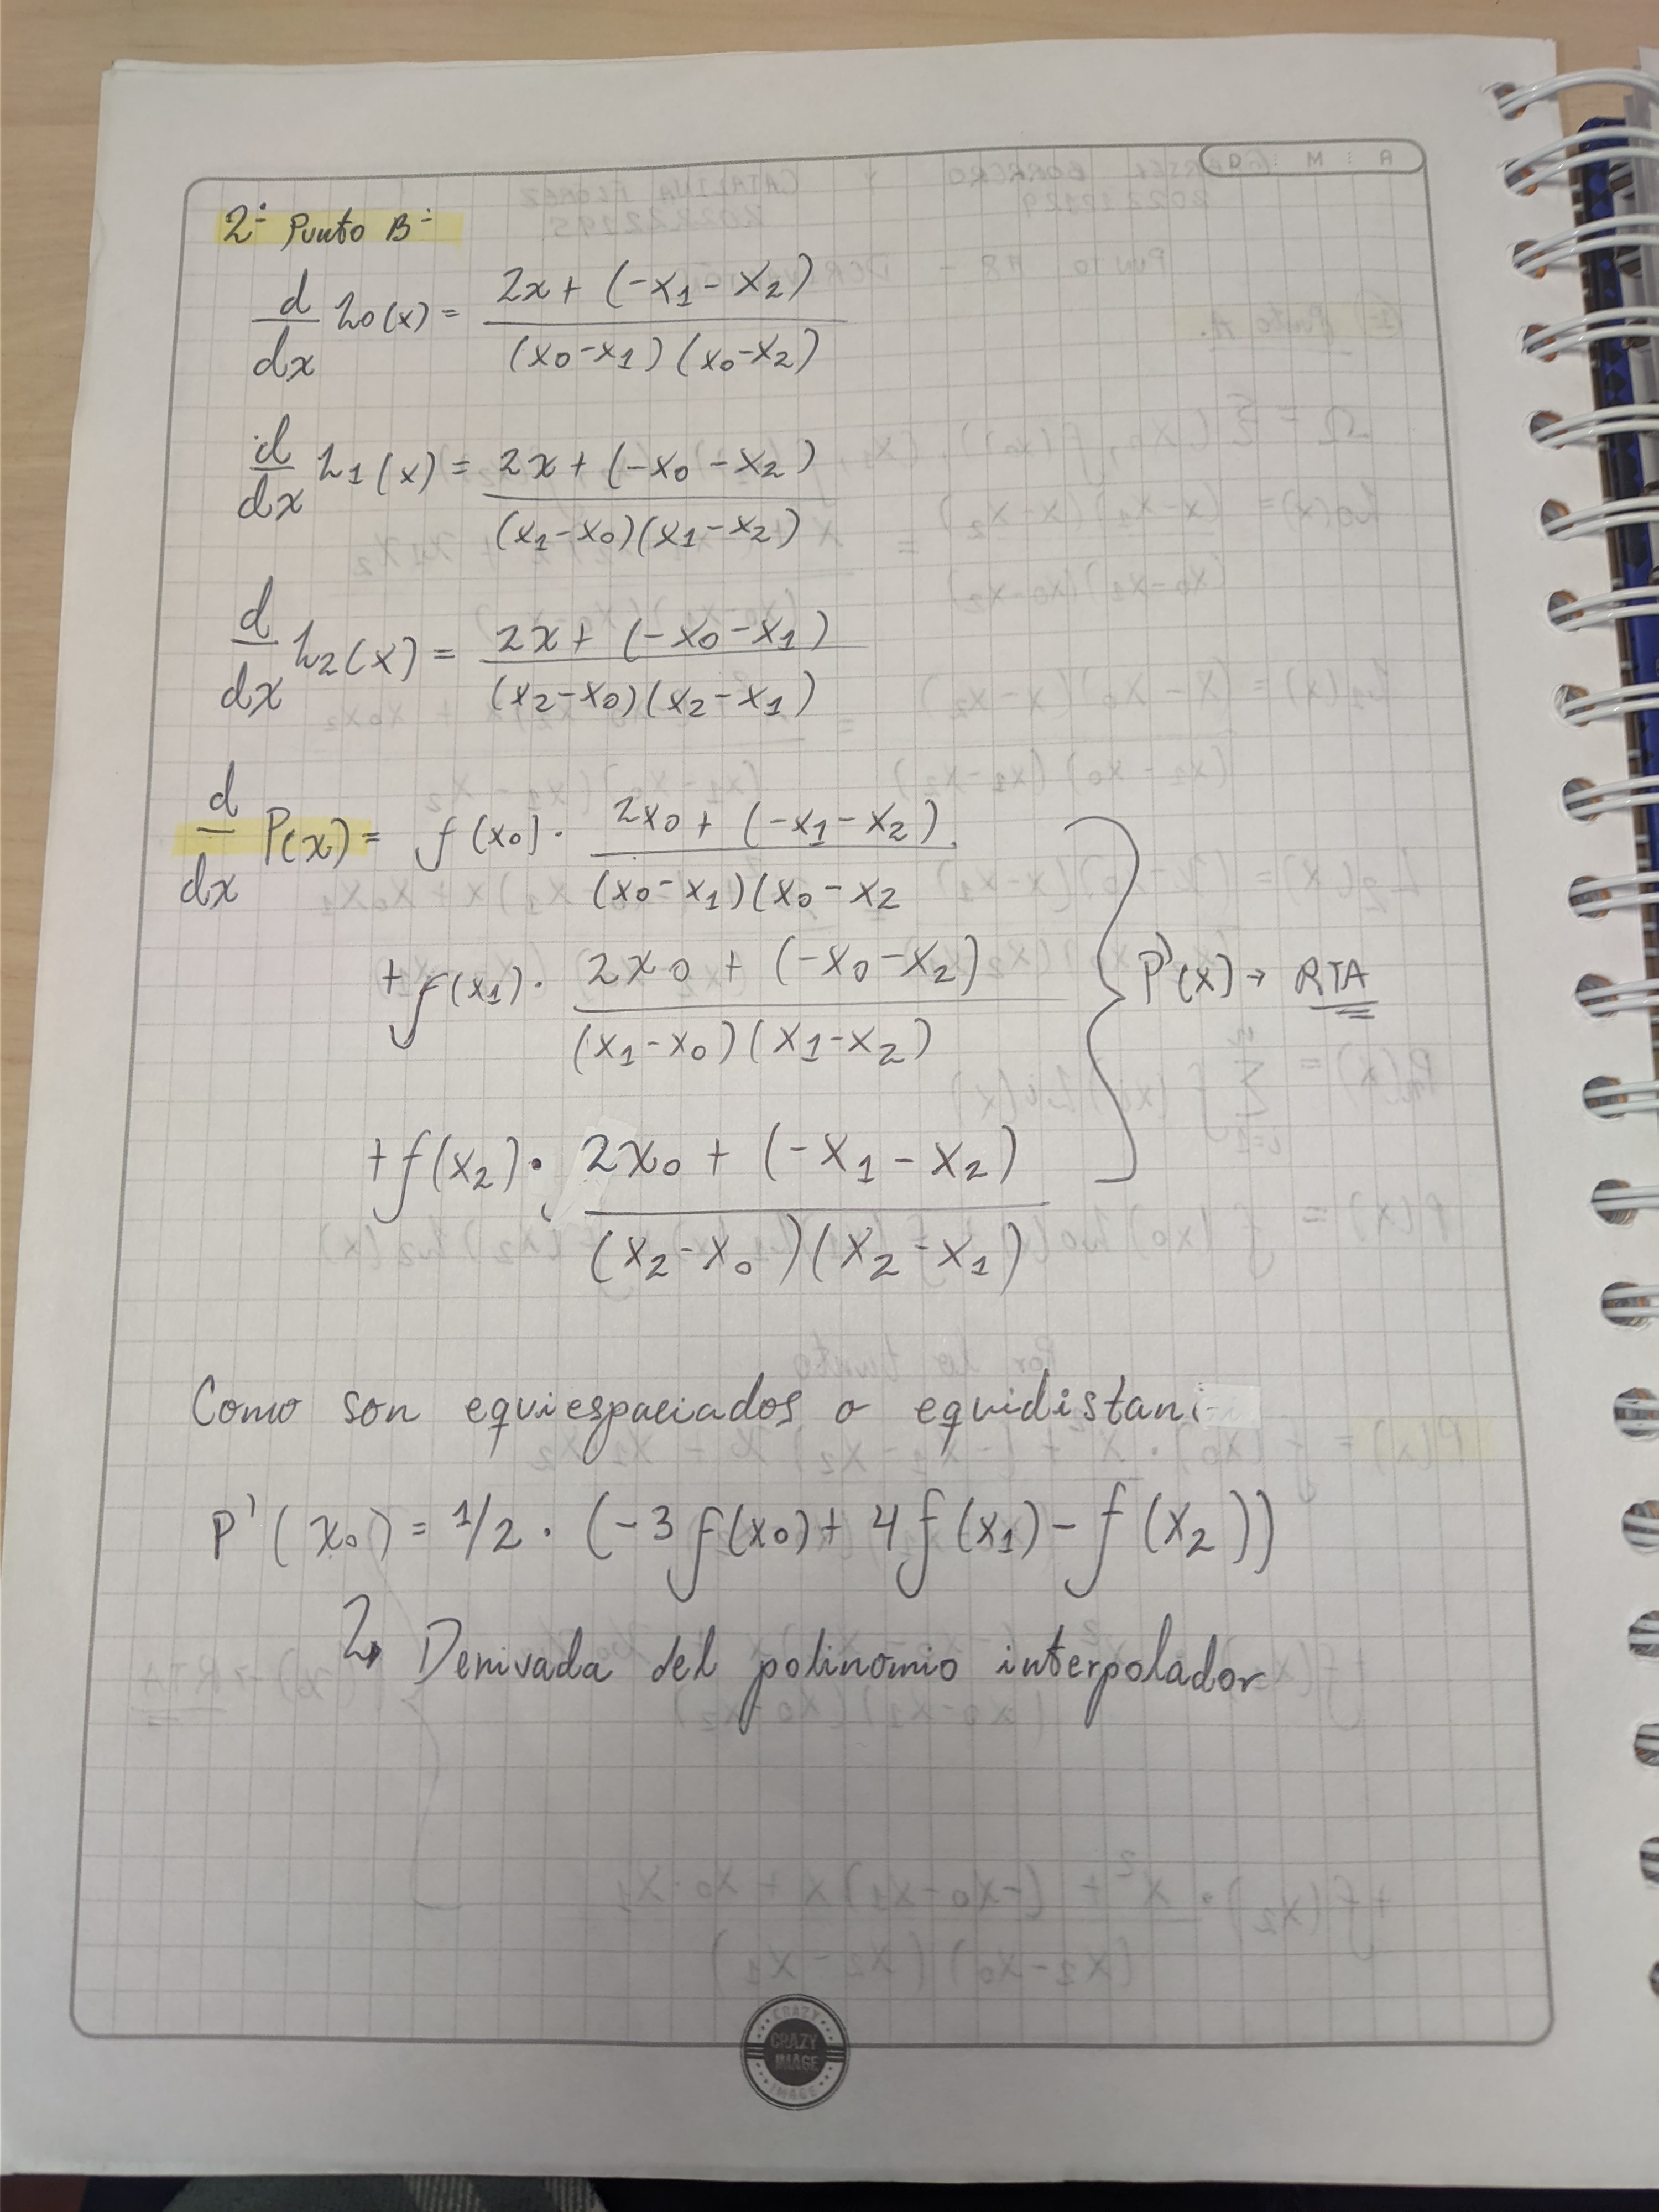 2- Punto B-
d/dx L0(x) = (2x + (-x1 - x2)) / ((x0-x1)(x0-x2))
d/dx L1(x) = (2x + (-x0 - x2)) / ((x1-x0)(x1-x2))
d/dx L2(x) = (2x + (-x0 - x1)) / ((x2-x0)(x2-x1))
d/dx P(x) = f(x0) · (2x0 + (-x1 - x2)) / ((x0-x1)(x0-x2
+ f(x1) · (2x0 + (-x0 - x2)) / ((x1-x0)(x1-x2))
} P'(x) → RTA
+ f(x2) · (2x0 + (-x1 - x2)) / ((x2-x0)(x2-x1))
Como son equiespaciados o equidistan
P'(x0) = 1/2 · (-3f(x0) + 4f(x1) - f(x2))
↳ Derivada del polinomio interpolador
D M A
CRAZY
CRAZY
IMAGE
IMAGE